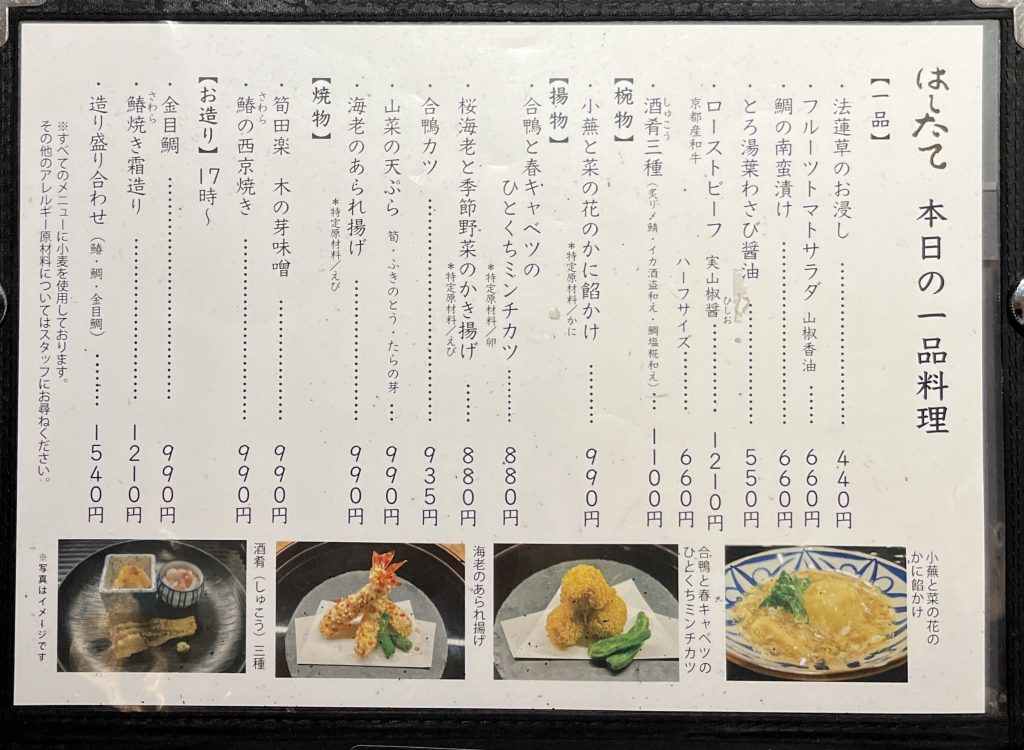 はしたて 本日の一品料理
【一品】
・法蓮草のお浸し ………… 440円
・フルーツトマトサラダ 山椒香油 … 660円
・鯛の南蛮漬け ………… 660円
・とろ湯葉わさび醤油 ………… 550円
・ローストビーフ 実山椒醤 ひしお ……… 1210円
京都産和牛 ・ ハーフサイズ …… 660円
・酒肴三種 しゅこう (炙り〆鯖・イカ酒盗和え・鯛塩糀和え) … 1100円
【椀物】
・小蕪と菜の花のかに餡かけ …… 990円
*特定原材料/かに
【揚物】
・合鴨と春キャベツの
ひとくちミンチカツ …… 880円
*特定原材料/卵
・桜海老と季節野菜のかき揚げ …… 880円
*特定原材料/えび
・合鴨カツ ………… 935円
・山菜の天ぷら 筍・ふきのとう・たらの芽 … 990円
・海老のあられ揚げ ………… 990円
*特定原材料/えび
【焼物】
・筍田楽 木の芽味噌 ………… 990円
・鰆の西京焼き さわら ………… 990円
【お造り】17時~
・金目鯛 ………… 990円
・鰆焼き霜造り さわら ………… 1210円
・造り盛り合わせ (鰆・鯛・金目鯛) …… 1540円
※すべてのメニューに小麦を使用しております。
その他のアレルギー原材料についてはスタッフにお尋ねください。
小蕪と菜の花の
かに餡かけ
合鴨と春キャベツの
ひとくちミンチカツ
海老のあられ揚げ
酒肴(しゅこう)三種
※写真はイメージです